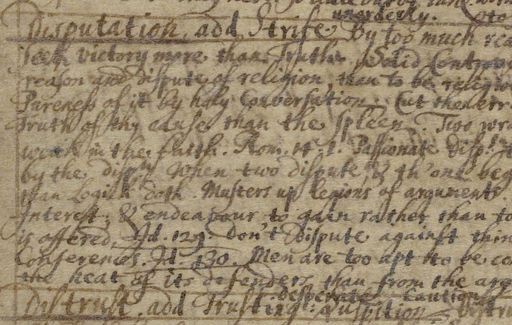 Disputation, add Strife By too much rea
unorderly.
Seek victory more than Truth. Avoid Controv
reason and dispute of religion than to be religiou
Pureness of it by holy Conversation.
Truth of thy cause than the Spleen. Two wro
weak in the faith. Rom. 14. 1. Passionate
by the When two dispute, & th' one beg
than Logick doth. Musters up legions of arguments
Interest; & endeavour to gain rather than to
is offered, Id. 129. Don't Dispute against thin
Conferences. Id. 130. Men are too apt to be co
the heat of its defenders, than from the arg
Distrust, add Trusting. desperate. Cautiou Suspition